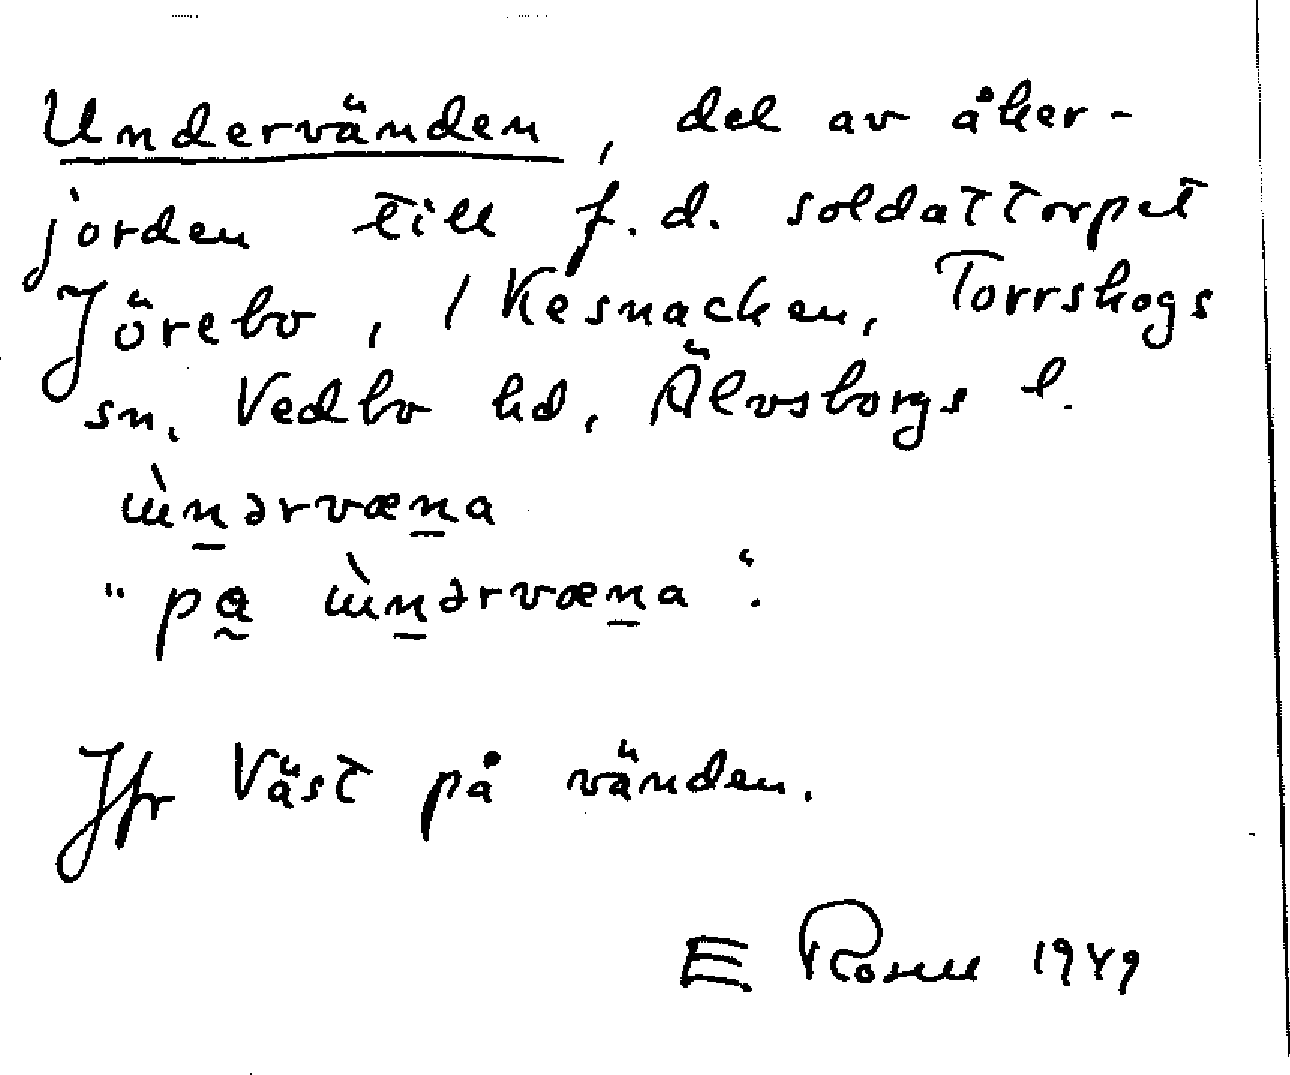 Undervänden, del av åker-
jorden till f.d. soldattorpet
Jörebo, 1 Kesnacken, Torrskogs
sn, Vedbo hd, Älvsborgs l.
ɯ̀n̲ərvæn̲a
"pa̰ ɯ̀n̲ərvæn̲a".
Jfr Väst på vänden.
E Rosell 1949